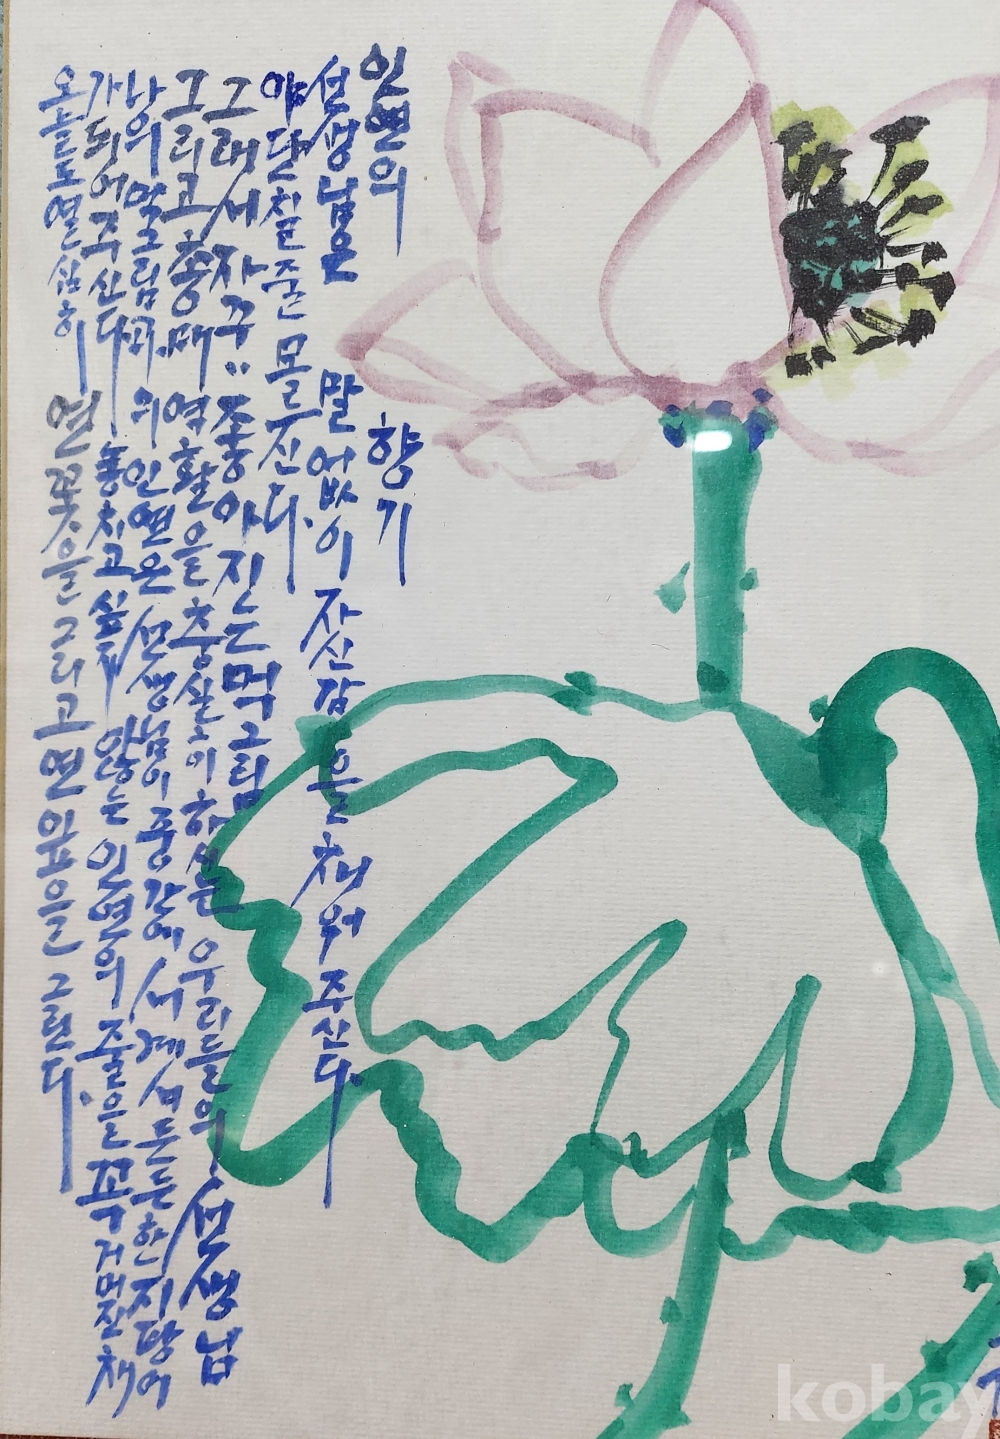 인연의 향기
선생님은 말 없이 자신감을 채워주신다.
야단칠 줄 모르신다.
그래서 자꾸 : 좋아지는 먹그림
그리고 총매 역활을 충실이 하시는 우리들의 선생님
낭의 먹그림과의 인연은 선생님이 중간에 서계셔 든든한 지팡이
가 되어주신다 놓치고 싶지 않는 인연의 줄을 꼭 거머잔채
오늘도 열심히 연꽃을 그리고 연잎을 그린다.
kobay